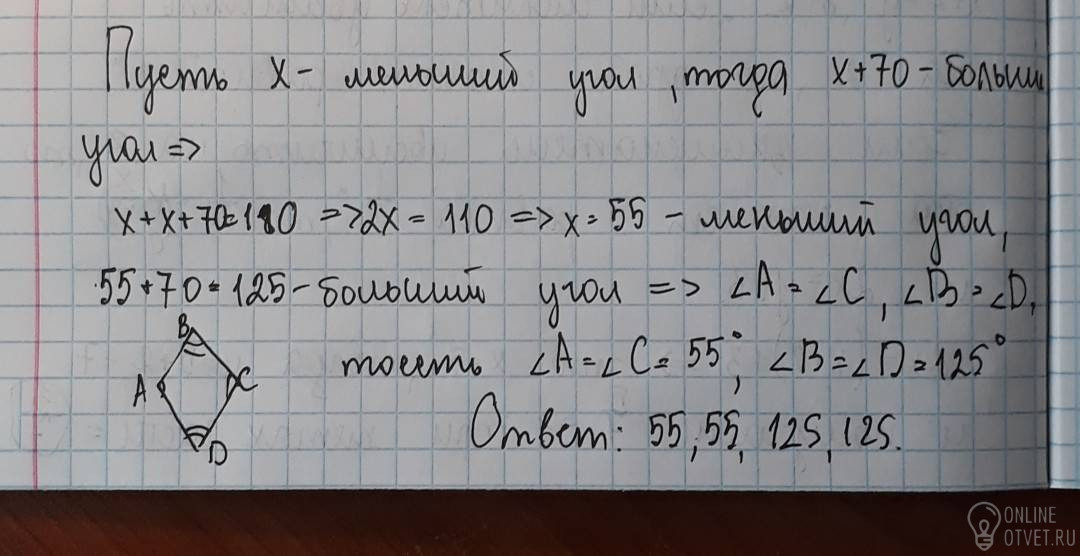 Пусть x - меньший угол, тогда x+70 - больший
угол =>
x+x+70=180 => 2x = 110 => x = 55 - меньший угол,
55+70=125 - больший угол => ∠A = ∠C, ∠B = ∠D,
тоесть ∠A = ∠C = 55°, ∠B = ∠D = 125°
B
A
C
D
Ответ: 55, 55, 125, 125.
ONLINE
OTVET.RU